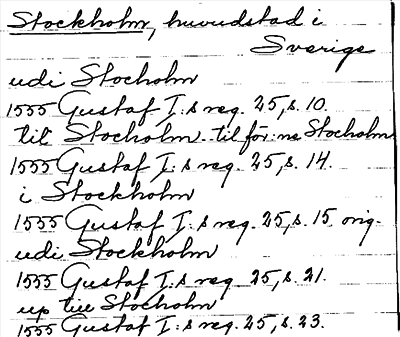 Stockholm, huvudstad i
Sverige
udi Stocholm
1555 Gustaf I:s reg. 25, s. 10.
till Stocholm. till för:ne Stocholm
1555 Gustaf I:s reg. 25, s. 14.
i Stockholm
1555 Gustaf I:s reg. 25, s. 15 orig.
udi Stockholm
1555 Gustaf I:s reg. 25, s. 21.
up till Stocholm
1555 Gustaf I:s reg. 25, s. 23.